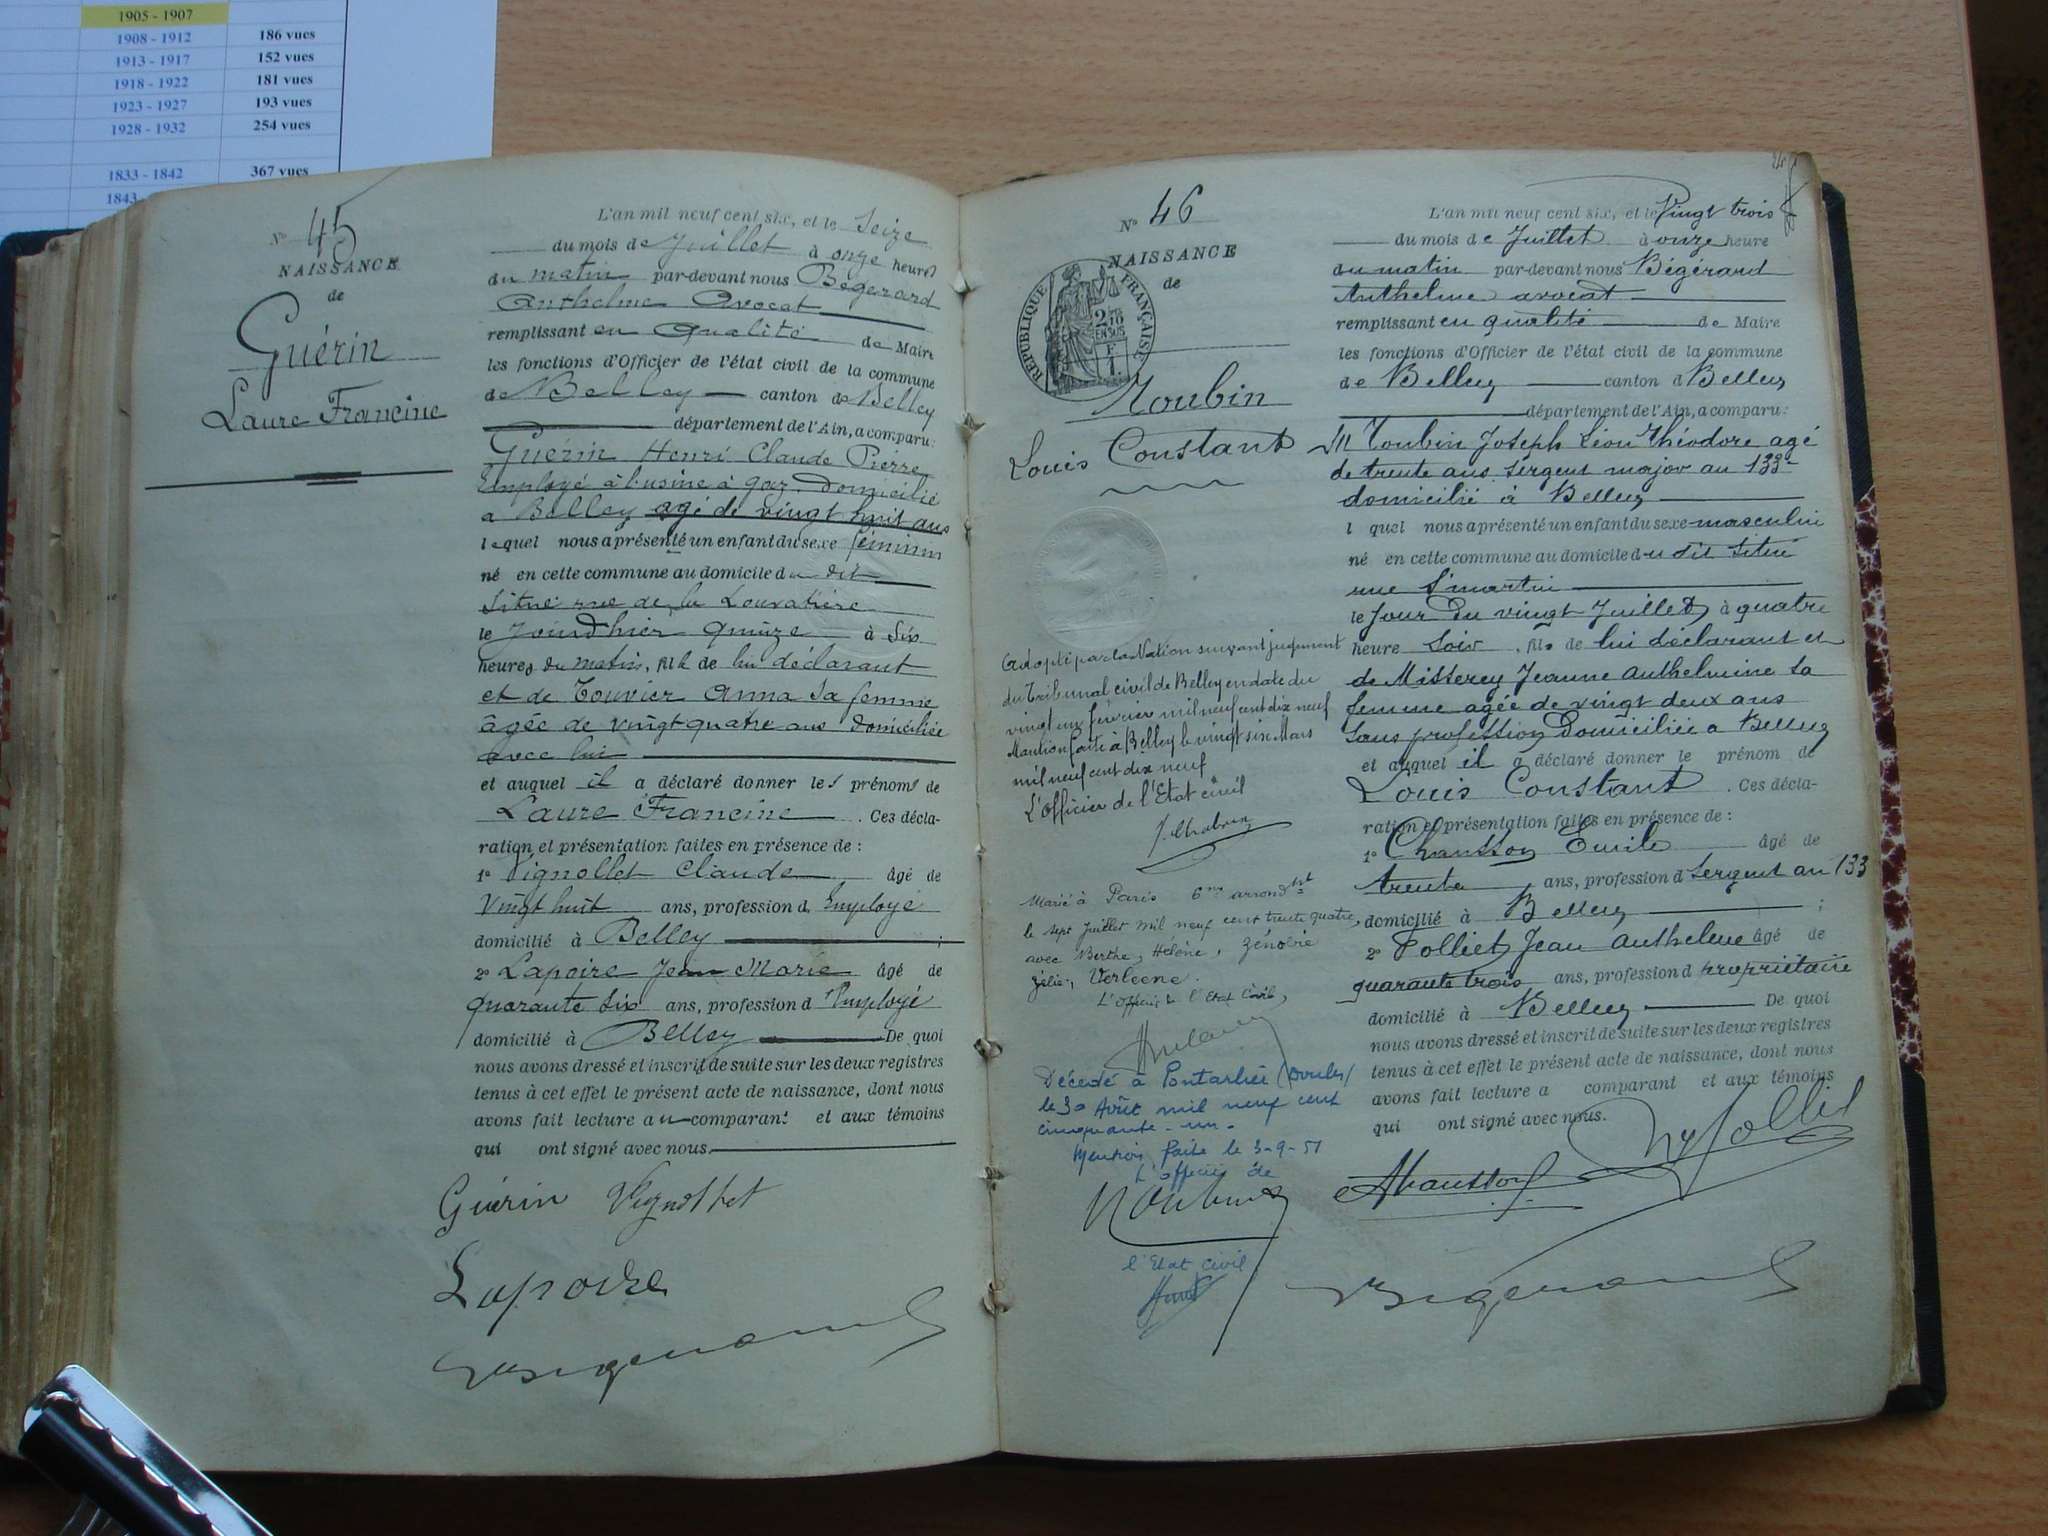 1905 - 1907
1908 - 1912 186 vues
1913 - 1917 152 vues
1918 - 1922 181 vues
1923 - 1927 193 vues
1928 - 1932 254 vues
1833 - 1842 367 vues
1843
N° 45
NAISSANCE
de
Guérin
Laure Francine
L'an mil neuf cent six, et le Seize
du mois de Juillet à onze heures
du matin par-devant nous Bégérard
Anthelme Avocat
remplissant en qualité de Maire
les fonctions d'Officier de l'état civil de la commune
de Belley canton de Belley
département de l'Ain, a comparu:
Guérin Henri Claude Pierre
Employé à l'usine à gaz. Domicilié
a Belley agé de vingt huit ans
lequel nous a présenté un enfant du sexe féminin
né en cette commune au domicile du dit
Situé rue de la Louvatière
le Jourd'hier quinze à Six
heures du matin, fille de lui déclarant
et de Touvier Anna Sa femme
âgée de vingt quatre ans Domiciliée
avec lui
et auquel il a déclaré donner les prénoms de
Laure Francine. Ces décla-
ration et présentation faites en présence de :
1° Vignollet Claude âgé de
Vingt huit ans, profession d Employé
domicilié à Belley ;
2° Lapoire Jean Marie âgé de
quarante six ans, profession d'Employé
domicilié à Belley De quoi
nous avons dressé et inscrit de suite sur les deux registres
tenus à cet effet le présent acte de naissance, dont nous
avons fait lecture au comparant et aux témoins
qui ont signé avec nous.
Guérin Vignollet
Lapoire
Begerard
N° 46
NAISSANCE
de
RÉPUBLIQUE FRANÇAISE
2/10 EN SUS
F
1.
Toubin
Louis Constant
Adopté par la Nation suivant jugement
du Tribunal civil de Belley en date du
vingt un février mil neuf cent dix neuf
Mention faite à Belley le vingt six Mars
mil neuf cent dix neuf
L'officier de l'Etat civil
Marié à Paris 6me arrondt
le sept Juillet mil neuf cent trente quatre,
avec Berthe, Hélène, Zénobie
Zélie, Verloene.
L'officier de l'Etat Civil,
Décédé à Pontarlier (Doubs)
le 30 Août mil neuf cent
cinquante-un.
Mention faite le 3-9-51
L'officier de
Toubin
l'Etat civil
L'an mil neuf cent six, et le Vingt trois
du mois de Juillet à onze heure
du matin par-devant nous Bégérard
Anthelme avocat
remplissant en qualité de Maire
les fonctions d'Officier de l'état civil de la commune
de Belley canton d Belley
département de l'Ain, a comparu:
M Toubin Joseph Léon Théodore agé
de trente ans sergent major au 133e
domicilié à Belley
l quel nous a présenté un enfant du sexe masculin
né en cette commune au domicile du dit situé
rue St martin
le jour du vingt Juillet à quatre
heure Soir, fils de lui déclarant et
de Misserey Jeanne Anthelmine sa
femme agée de vingt deux ans
sans profession Domiciliée a Belley
et auquel il a déclaré donner le prénom de
Louis Constant. Ces décla-
ration et présentation faites en présence de :
1° Chausson Emile âgé de
trente ans, profession d sergent au 133
domicilié à Belley ;
2° Polliet Jean Anthelme âgé de
quarante trois ans, profession d propriétaire
domicilié à Belley De quoi
nous avons dressé et inscrit de suite sur les deux registres
tenus à cet effet le présent acte de naissance, dont nous
avons fait lecture a comparant et aux témoins
qui ont signé avec nous.
Polliet
Chausson
Begerard